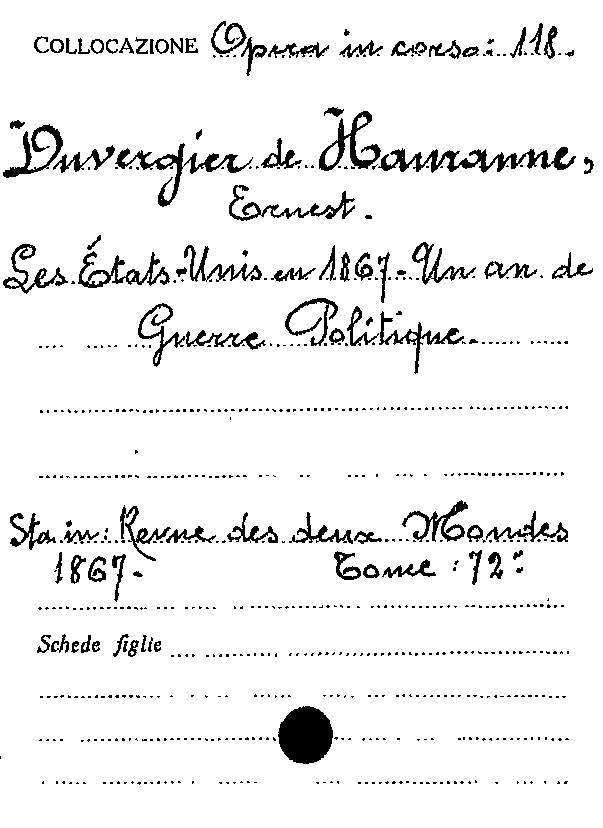 COLLOCAZIONE Opera in corso: 118.
Duvergier de Hauranne,
Ernest.
Les États-Unis en 1867. Un an de
Guerre Politique.
Sta in: Revue des deux Mondes
1867. Tome: 72º
Schede figlie